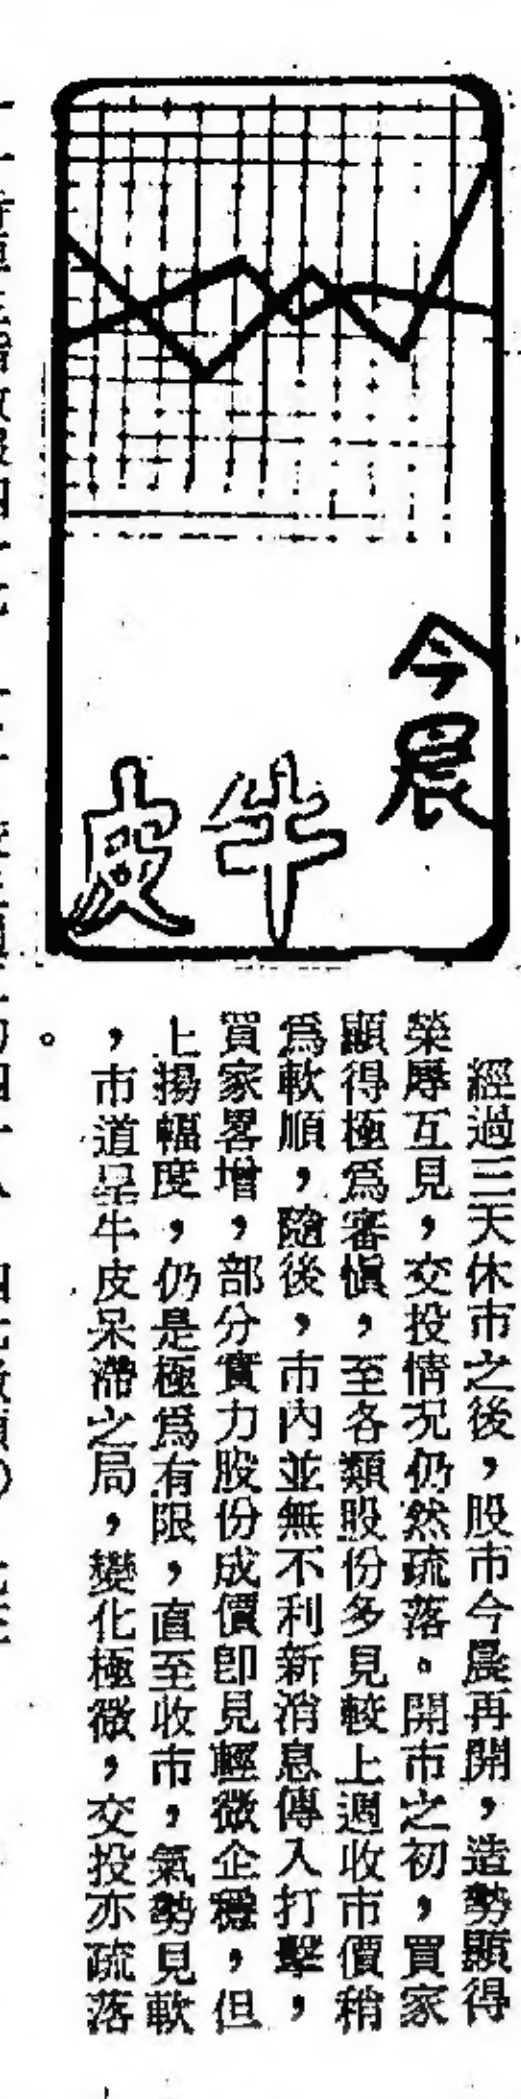 今晨
牛皮
經過三天休市之後，股市今晨再開，造勢顯得
榮辱互見，交投情况仍然疏落。開市之初，買家
顯得極爲審慎，至各類股份多見較上週收市價稍
爲軟順，隨後，市內並無不利新消息傳入打擊，
買家畧增，部分實力股份成價卽見輕微企穩，但
上揚幅度，仍是極爲有限，直至收市，氣勢見軟
，市道呈牛皮呆滯之局，變化極微，交投亦疏落
。